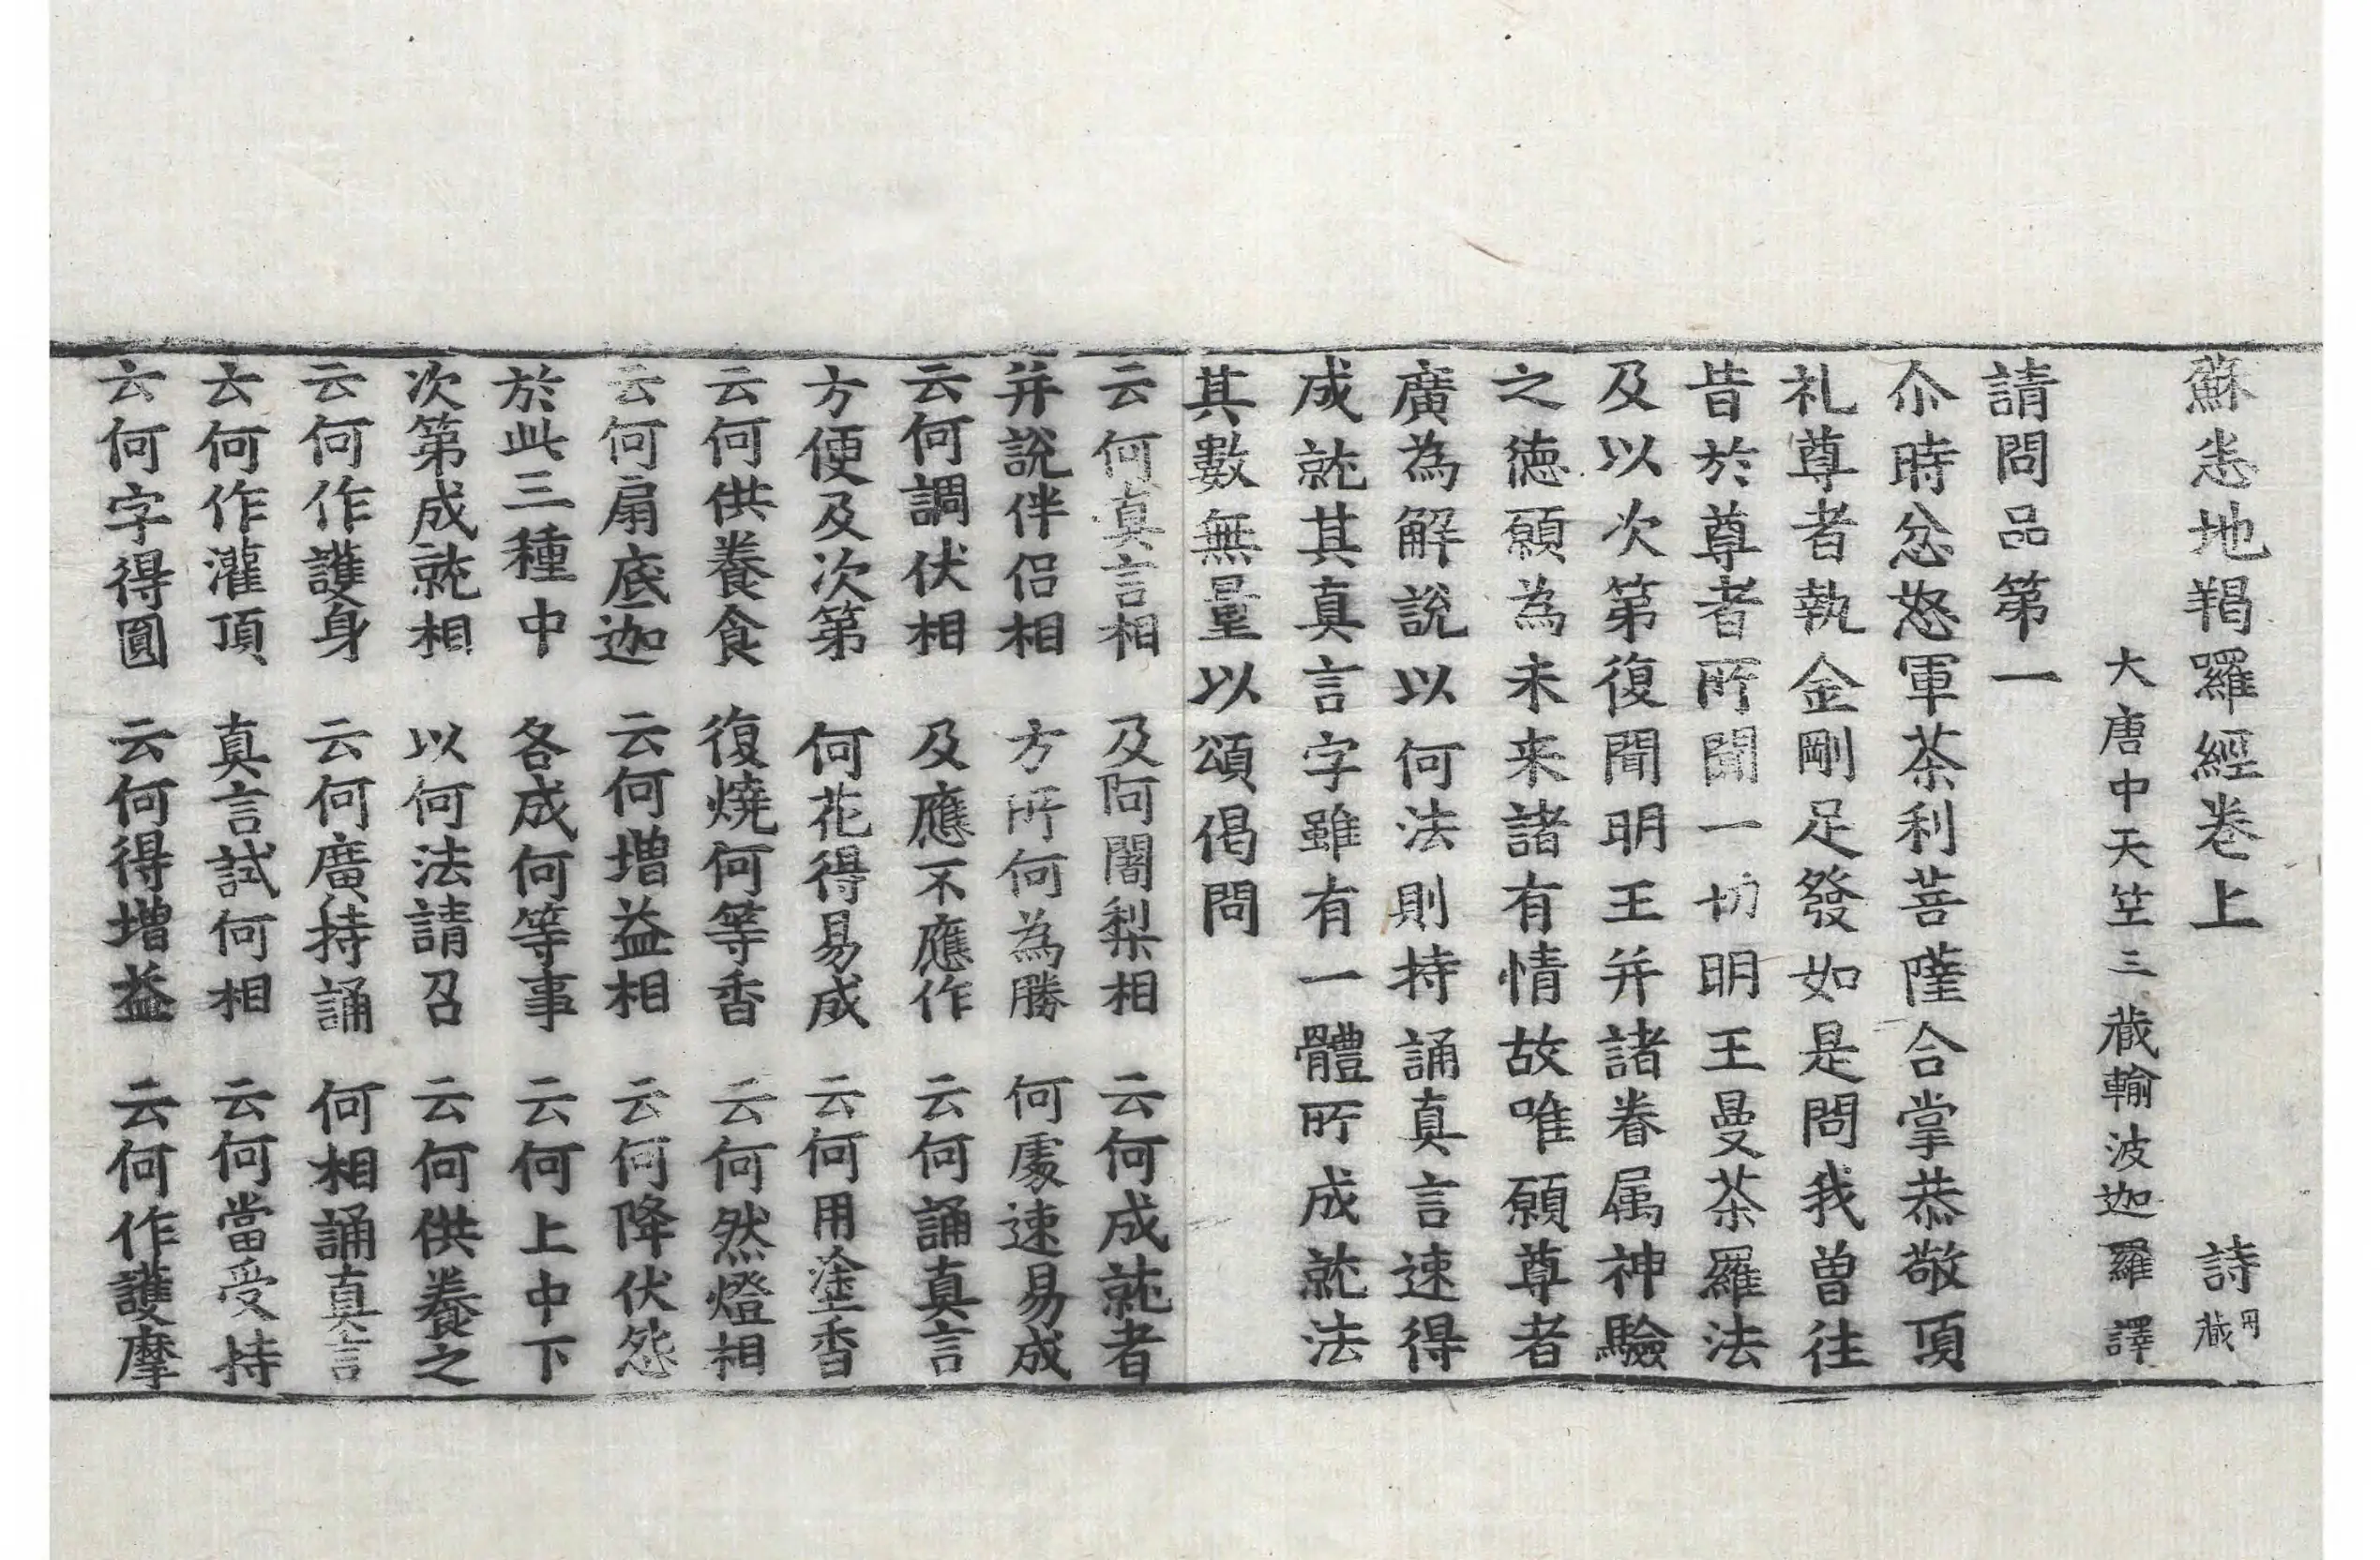 蘇悉地羯羅經卷上 詩 丹藏
大唐中天笁三藏輸波迦羅譯
請問品第一
尒時忿怒軍荼利菩薩合掌恭敬頂
礼尊者執金剛足發如是問我曾往
昔於尊者所聞一切明王曼荼羅法
及以次第復聞明王并諸眷属神驗
之徳願為未来諸有情故唯願尊者
廣為解說以何法則持誦真言速得
成就其真言字雖有一體所成就法
其數無量以頌偈問
云何真言相 及阿闍梨相 云何成就者
并說伴侣相 方所何為勝 何處速易成
云何調伏相 及應不應作 云何誦真言
方便及次第 何花得易成 云何用塗香
云何供養食 復燒何等香 云何然燈相
云何扇底迦 云何增益相 云何降伏怨
於此三種中 各成何等事 云何上中下
次第成就相 以何法請召 云何供養之
云何作護身 云何廣持誦 何相誦真言
云何作灌頂 真言試何相 云何當受持
云何字得圓 云何得增益 云何作護摩